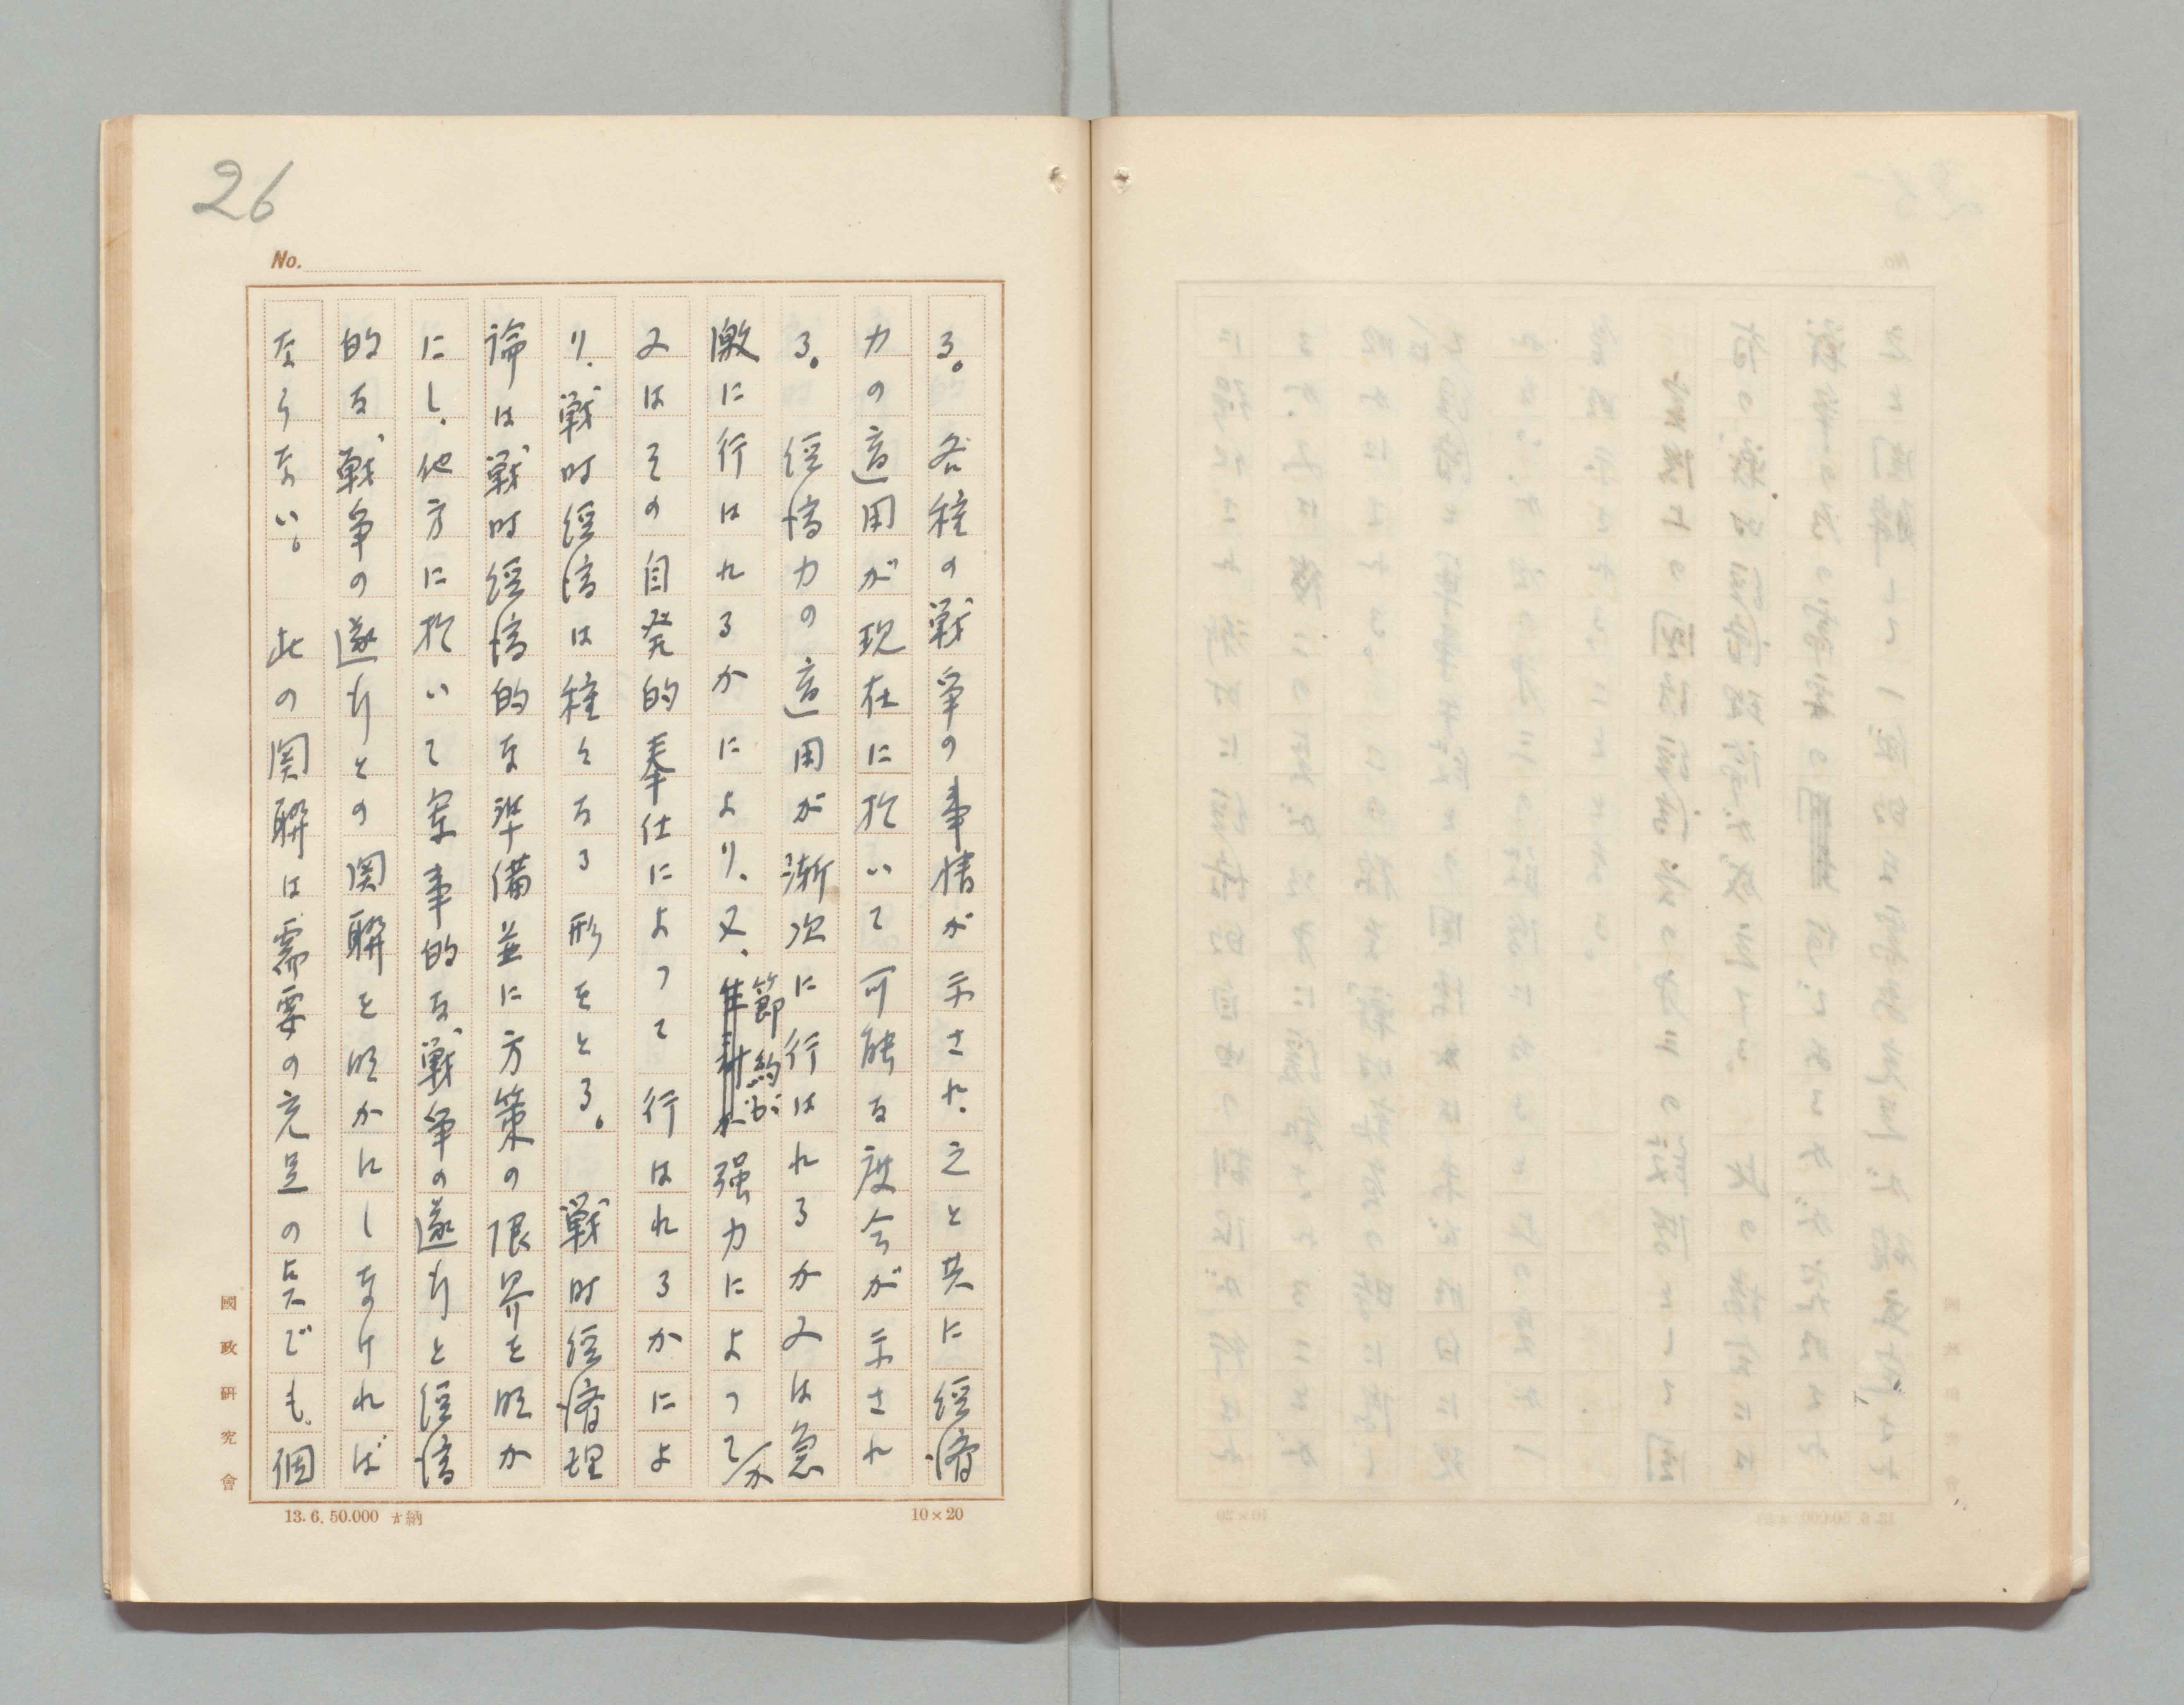 26
No.
る。各種の戦争の事情が示され、之と共に経済
力の適用が現在に於いて可能な度合が示され
る。経済力の適用が漸次に行はれるか又は急
激に行はれるかにより、又、節約が強力によつてか
又はその自発的奉仕によつて行はれるかによ
り、戦時経済は種々なる形をとる。戦時経済理
論は戦時経済的な準備並に方策の限界を明か
にし、他方に於いて軍事的な戦争の遂行と経済
的な戦争の遂行との関聯を明かにしなければ
ならない。此の関聯は需要の充足の点でも、個
國政研究會
13. 6. 50.000 納
10×20